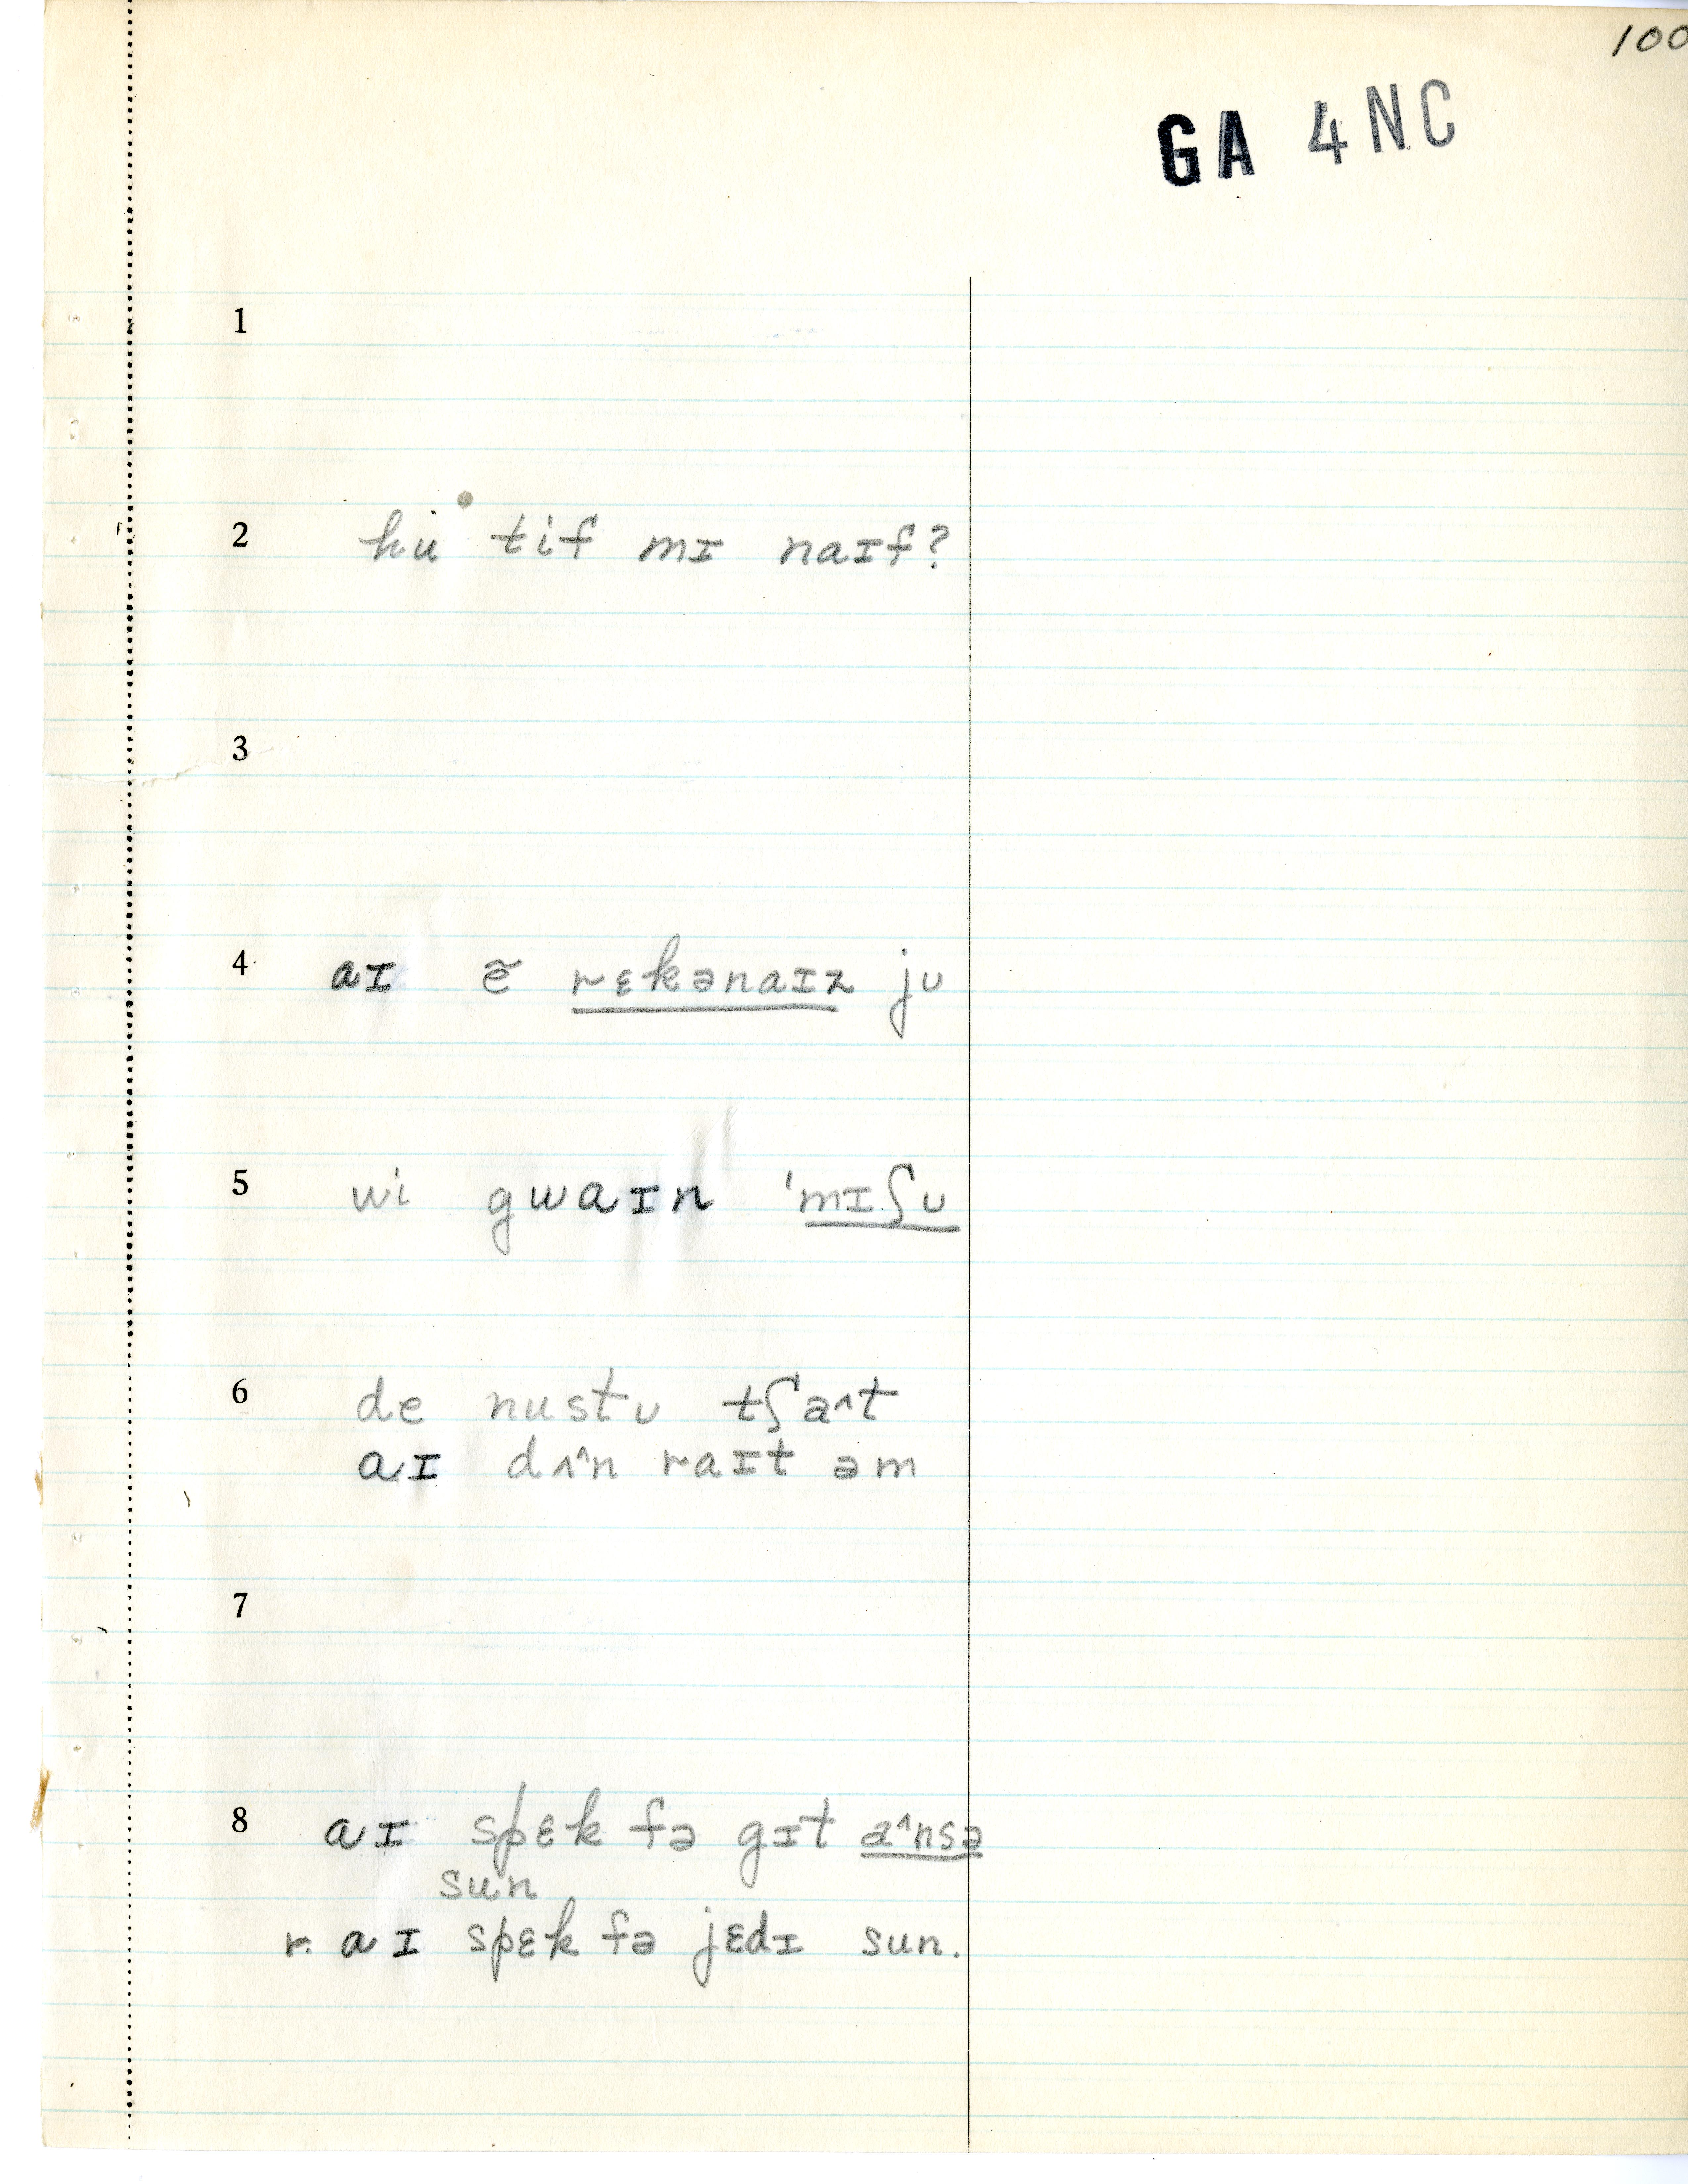 100
GA 4NC
1
2 hu tif mɪ naɪf?
3
4 aɪ ẽ rɛkənaɪz jʊ
5 wi gwaɪn 'mɪʃʊ
6 de nustʊ tʃaʌt
aɪ dʌ^n raɪt əm
7
8 aɪ spɛk fə gɪt a^nsə
sun
r. aɪ spɛk fə jɛdɪ sun.